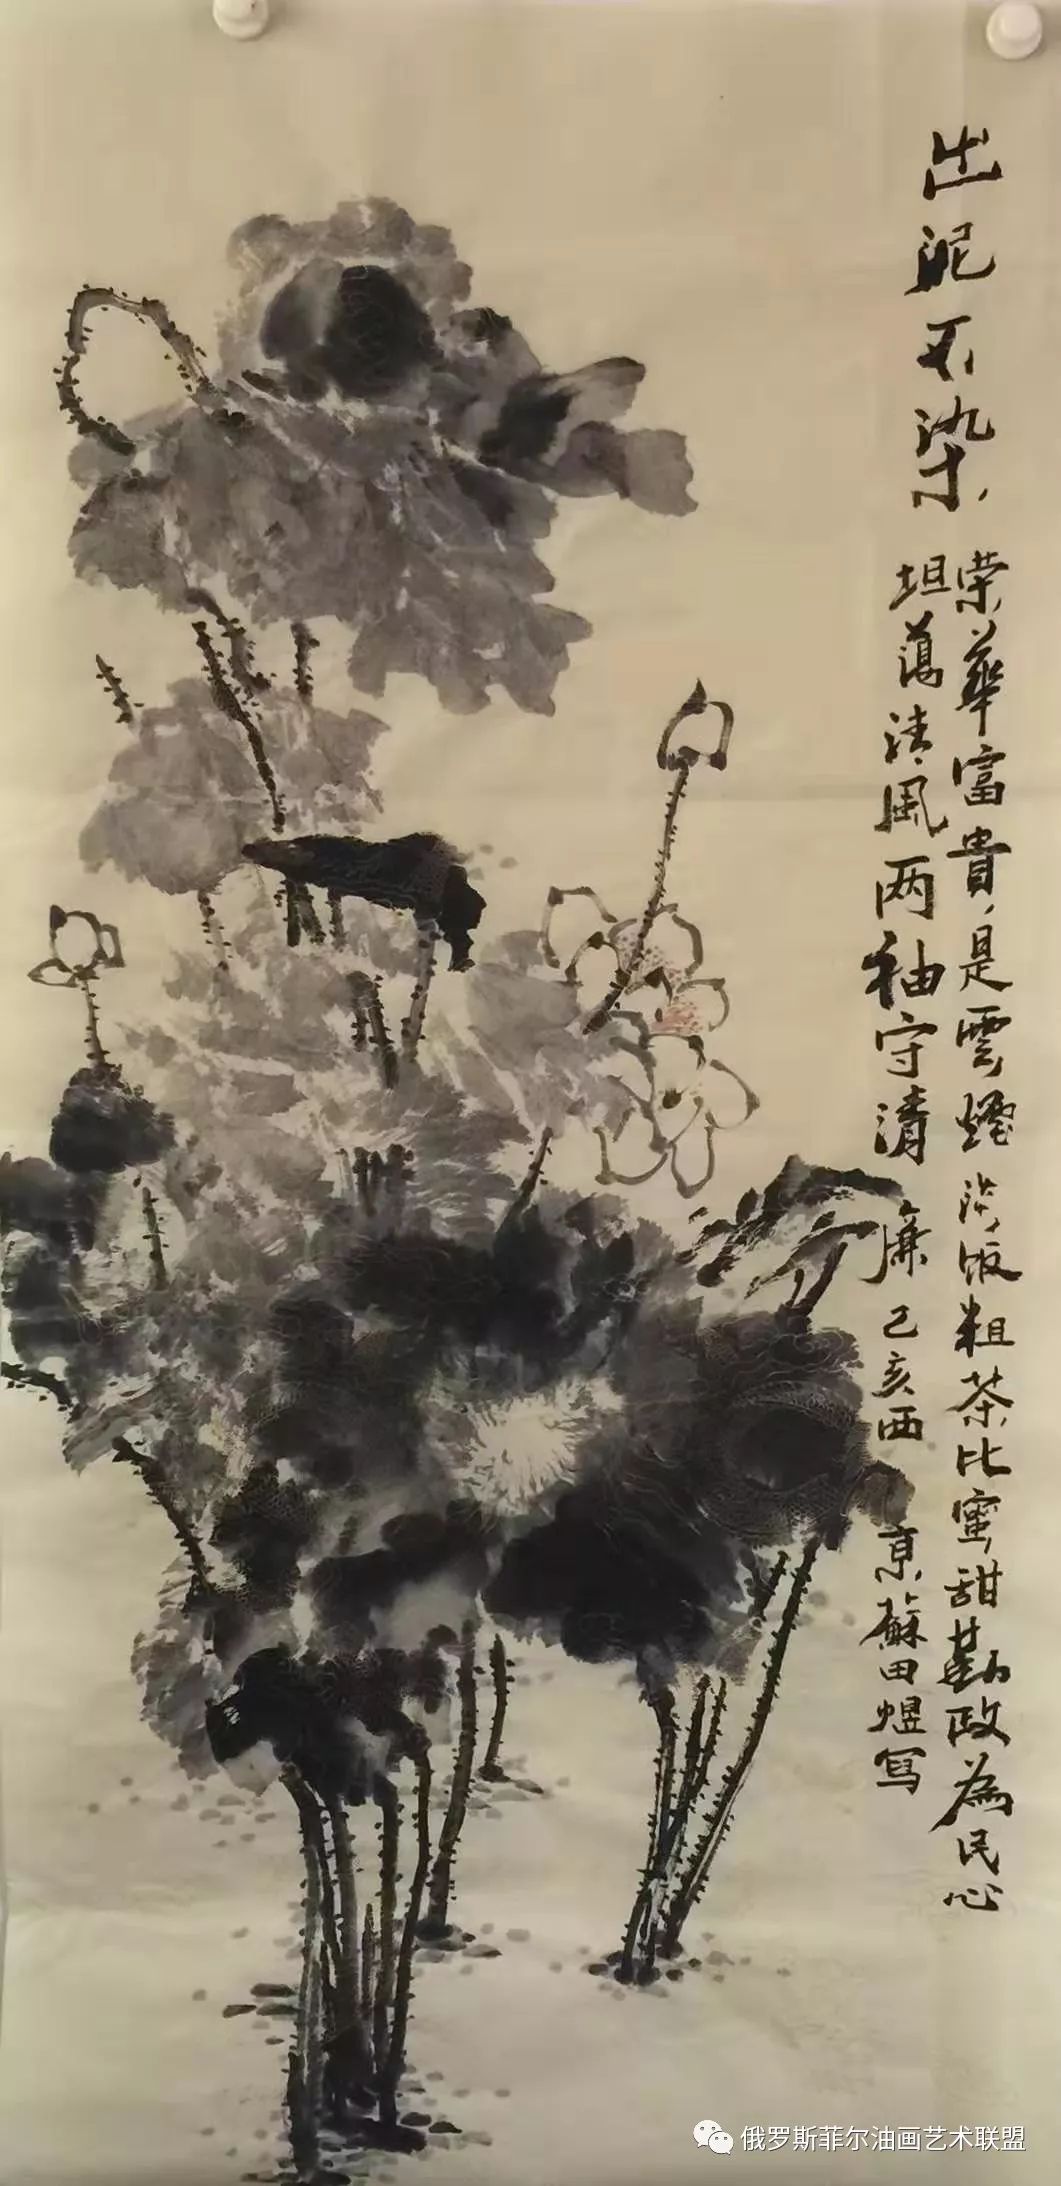 出泥不染
荣華富貴是雲煙淡饭粗茶比蜜甜勤政為民心
坦荡清風两袖守清廉己亥西京蘇田煜写
俄罗斯菲尔油画艺术联盟